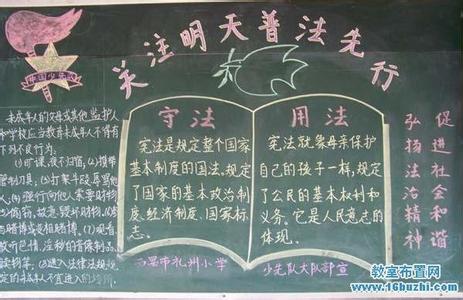 关注明天普法先行
中国少先队
未成年人的父母或其他监护人
和学校应当教育未成年人不得有
下列不良行为:
(1)旷课、夜不归宿;(2)携带
管制刀具;(3)打架斗殴、辱骂他
人;(4)强行向他人索要财物;
偷窃、故意毁坏财物;
赌博或变相赌博;(7)观看、
收听色情、淫秽的音像制品、
读物等;(8)进入法律法规规
定的未成年人不宜进入的场所.
守法
宪法是规定整个国家
基本制度的国法。规定
了国家的基本政治制
度、经济制度、国家标
志。
用法
宪法就象母亲保护
自己的孩子一样,规定
了公民的基本权利和
义务。它是人民意志的
体现。
促进社会和谐
弘扬法治精神
西昌市礼州小学
少先队大队部宣
教室布置网
www.16buzhi.com